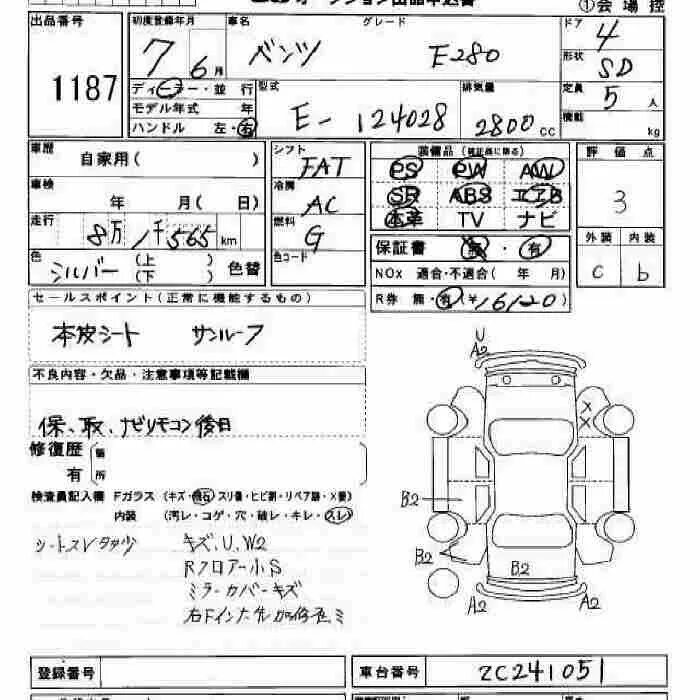 ①会場控
出品番号 1187
初度登録年月 7 6月
車名 ベンツ
グレード E280
ドア 4
形状 SD
定員 5 人
積載 kg
ディーラー・並行
モデル年式 年
ハンドル 左・右
型式 E-124028
排気量 2800cc
車歴 自家用( )
車検 年 月( 日)
走行 8万1千565km
色 シルバー (上) (下) 色替
シフト FAT
冷房 AC
燃料 G
色コード
装備品
PS PW AW
SR ABS エアB
本革 TV ナビ
保証書 無・有
NOx 適合・不適合( 年 月)
R券 無・有(¥16120)
評価点
3
外装 内装
C b
セールスポイント(正常に機能するもの)
本皮シート サンルーフ
不良内容・欠品・注意事項等記載欄
保、取、ナビリモコン後日
修復歴
有
検査員記入欄 Fガラス(キズ・飛石・スリ傷・ヒビ割・リペア跡・X要)
内装 (汚レ・コゲ・穴・破レ・キレ・スレ)
シートスレ
キズ、U、W2
Rフロアー小S
ミラーカバーキズ
U
A2
X
X
B2
B2
B2
A2
A2
登録番号
車台番号 ZC241051